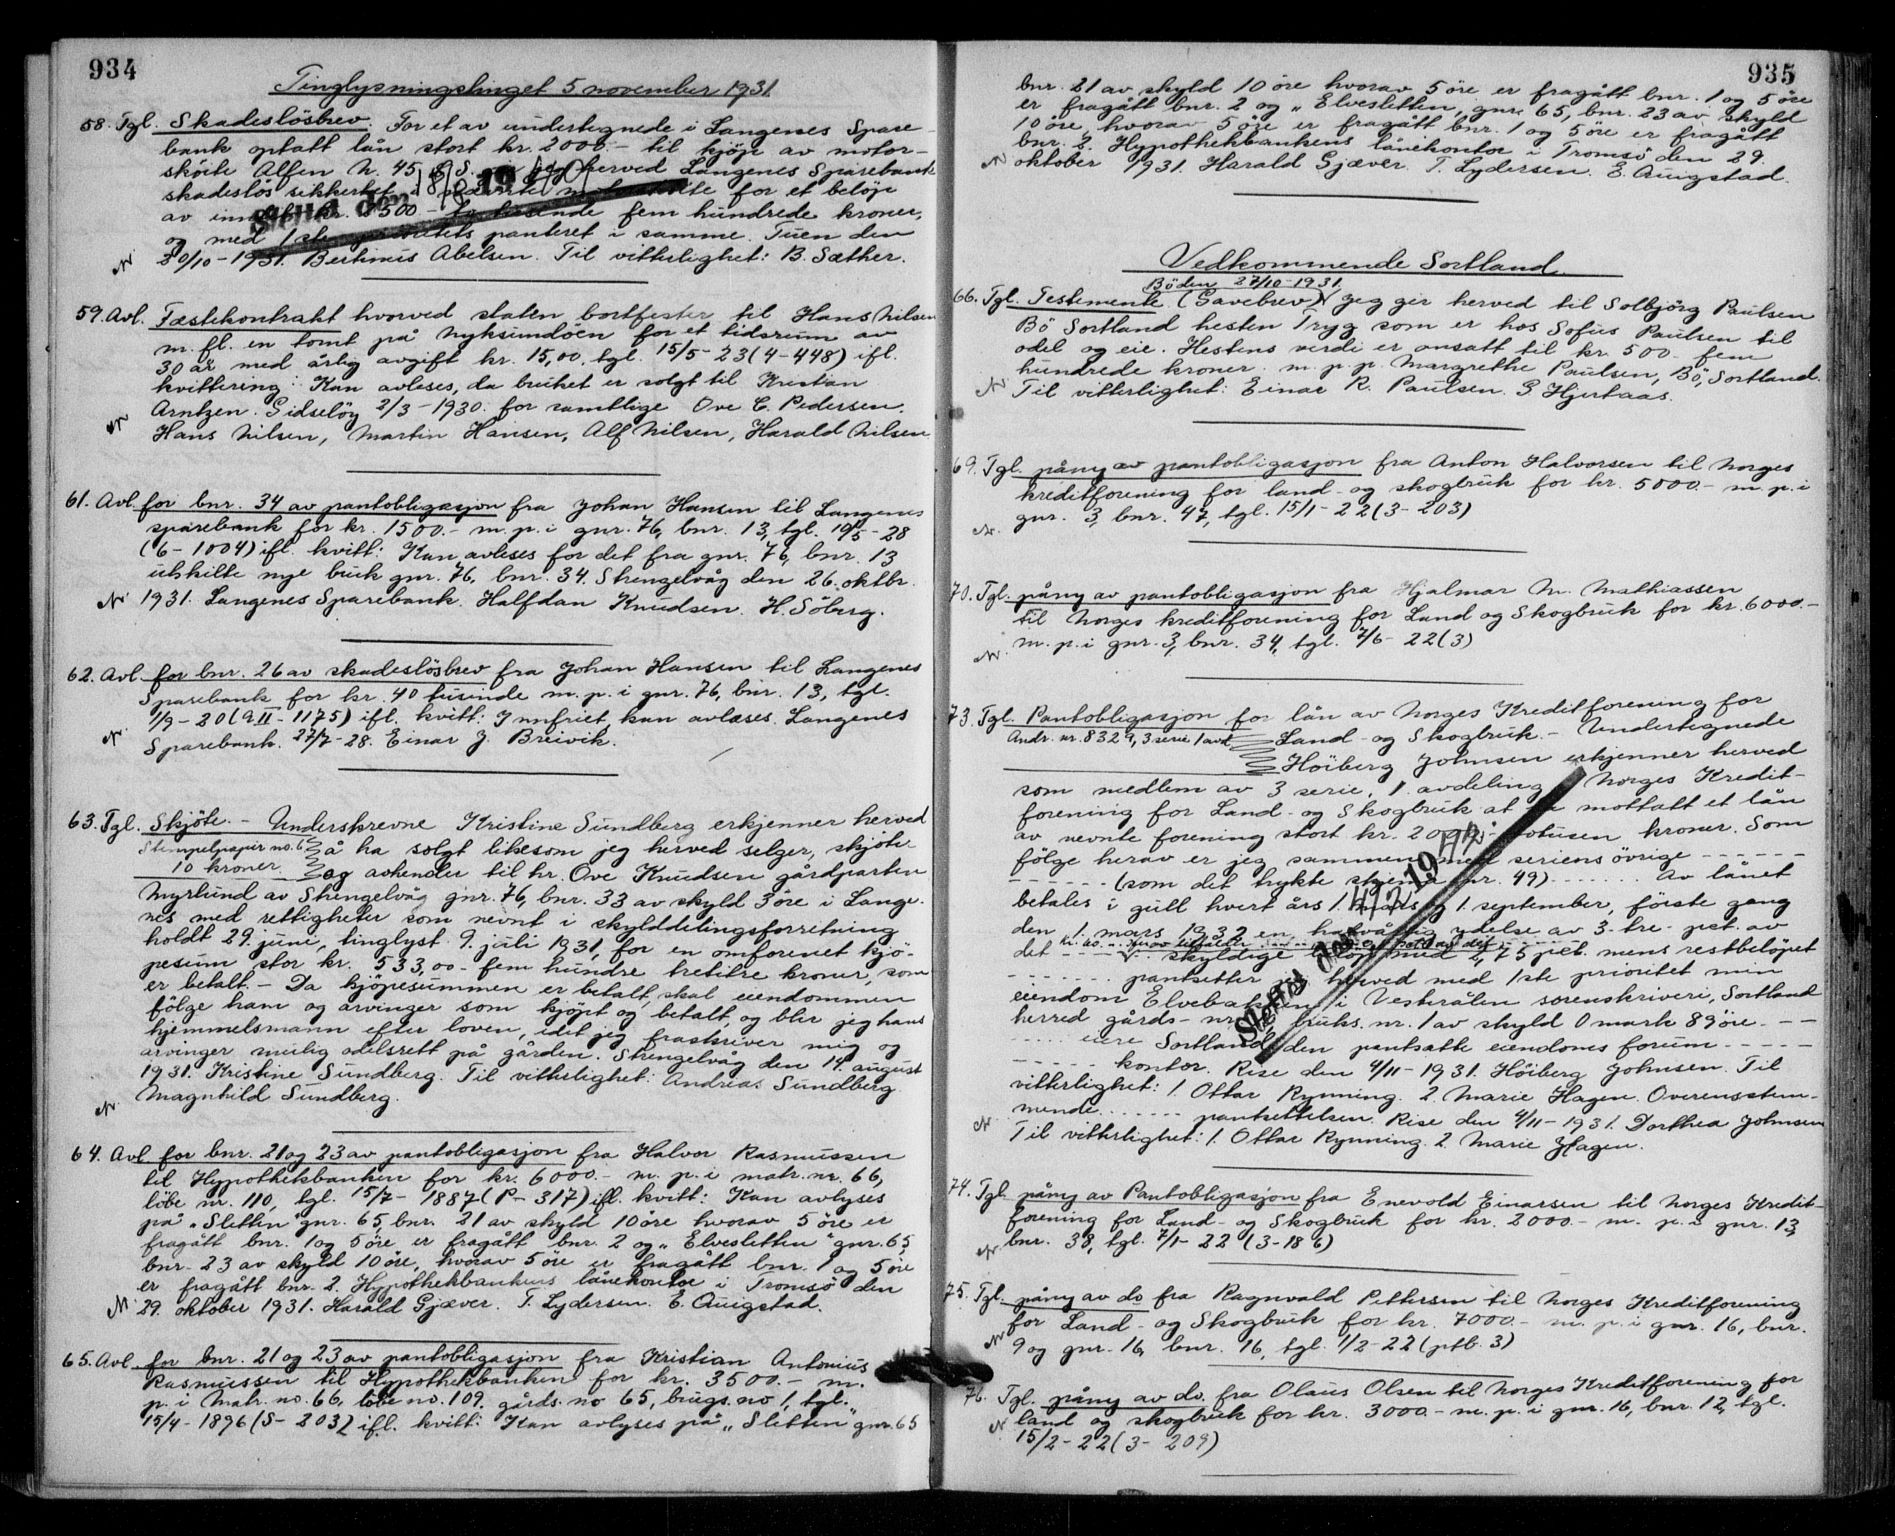 934
Tinglysningstinget 5 november 1931.
58. Tgl. Skadeslösbrev. For et av undertegnede i Langenes Spare-
bank optatt lån stort kr. 2000.- til kjöp av motor-
sköite Alfen N. 45 herved Langenes Sparebank
skadeslös sikkerhet for et belöp
av inntil kr. 2500.- to tusende fem hundrede kroner,
og med 1ste prioritets panteret i samme. Tuen den
30/10-1931. Bertinius Abelsen. Til vitterlighet: B. Sæther.
Slettet den 18/8 19
59. Avl. Fæstekontrakt hvorved staten bortfester til Hans Nilsen
m. fl. en tomt på Nyksundöen for et tidsrum av
30 år med årlig avgift kr. 15,00, tgl. 15/5-23 (4-448) ifl.
kvittering: Kan avleses, da bruket er solgt til Kristian
Arntzen. Gidselöy 2/3-1930. for samtlige Ove C. Pedersen.
Hans Nilsen, Martin Hansen, Alf Nilsen, Harald Nilsen
61. Avl. for bnr. 34 av pantobligasjon fra Johan Hansen til Langenes
sparebank for kr. 1500.- m.p. i gnr. 76, bnr. 13, tgl. 19/5-28
(6-1004) ifl. kvitt: Kan avleses for det fra gnr. 76, bnr. 13
utskilte nye bruk gnr. 76, bnr. 34. Strengelvåg den 26. oktbr.
1931. Langenes Sparebank. Halfdan Knudsen. H. Söberg.
62. Avl. for bnr. 26 av skadeslösbrev fra Johan Hansen til Langenes
Sparebank for kr. 40 tusinde m.p. i gnr. 76, bnr. 13, tgl.
1/9-20 (9 II-1175) ifl. kvitt: Innfriet, kan avlæses. Langenes
Sparebank. 27/7-28. Einar J. Breivik.
63. Tgl. Skjöte. - Underskrevne Kristine Sundberg erkjenner herved
Stempelpapir no. 6 å ha solgt likesom jeg herved selger, skjöter
10 kroner og avhender til hr. Ove Knudsen gårdparten
Myrlund av Strengelvåg gnr. 76, bnr. 33 av skyld 3 öre i Lange-
nes med rettigheter som nevnt i skylddelingsforretning
holdt 29. juni, tinglyst 9. juli 1931, for en omforenet kjö-
pesum stor kr. 533,00 - fem hundre trettitre kroner, som
er betalt. - Da kjöpesummen er betalt, skal eiendommen
fölge ham og arvinger som kjöpt og betalt, og blir jeg hans
hjemmelsmann efter loven, idet jeg fraskriver mig og
arvinger mulig odelsrett på gården. Strengelvåg den 14. august
1931. Kristine Sundberg. Til vitterlighet: Andreas Sundberg
Magnhild Sundberg.
64. Avl. for bnr. 21 og 23 av pantobligasjon fra Halvor Rasmussen
til Hypothekbanken for kr. 6000.- m.p. i matr. nr. 66,
löbe nr. 110, tgl. 15/7-1887 (P-317) ifl. kvitt: Kan avlyses
på "Sletten" gnr. 65, bnr. 21 av skyld 10 öre hvorav 5 öre er
fragått bnr. 1 og 5 öre er fragått bnr. 2 og "Elvesletten" gnr. 65,
bnr. 23 av skyld 10 öre, hvorav 5 öre er fragått bnr. 1 og 5 öre
er fragått bnr. 2. Hypothekbankens lånekontor i Tromsö den
29. oktober 1931. Harald Gjæver. T. Lydersen. E. Auigstad.
65. Avl. for bnr. 21 og 23 av pantobligasjon fra Kristian Antonius
Rasmussen til Hypothekbanken for kr. 3500.- m.
p. i Matr. no. 66, löbe no. 109, gårds. no 65, brugs. no 1, tgl.
15/4-1896 (S-203) ifl. kvitt: Kan avlyses på "Sletten" gnr. 65
935
bnr. 21 av skyld 10 öre hvorav 5 öre er fragått bnr. 1 og 5 öre
er fragått bnr. 2 og "Elvesletten, gnr. 65, bnr. 23 av skyld
10 öre, hvorav 5 öre er fragått bnr. 1 og 5 öre er fragått
bnr. 2. Hypothekbankens lånekontor i Tromsö den 29.
oktober 1931. Harald Gjæver. T. Lydersen. E. Auigstad.
Vedkommende Sortland
Böden 27/10-1931.
66. Tgl. Testemente (Gavebrev) Jeg gir herved til Solbjörg Paulsen
Bö Sortland hesten Tryg som er hos Sofus Paulsen til
odel og eie. Hestens verdi er ansatt til kr. 500 fem
hundrede kroner. m.p.p. Margrethe Paulsen, Bö, Sortland.
Til vitterlighet: Einar R. Paulsen. G Hjertaas.
69. Tgl. påny av pantobligasjon fra Anton Halvorsen til Norges
kreditforening for land- og skogbruk for kr. 5000.- m.p. i
gnr. 3, bnr. 47, tgl. 15/1-22 (3-203)
70. Tgl. påny av pantobligasjon fra Hjalmar M. Mathiassen
til Norges kreditforening for Land og Skogbruk for kr. 6000.-
m.p. i gnr. 3, bnr. 34, tgl. 7/6-22 (3)
73. Tgl. Pantobligasjon for lån av Norges Kreditforening for
Andr. nr. 8329, 3 serie 1 avd. Land- og Skogbruk. - Undertegnede
Höiberg Johnsen erkjenner herved
som medlem av 3 serie, 1. avdeling Norges Kredit-
forening for Land- og Skogbruk at ha mottatt et lån
av nevnte forening stort kr. 2000.- totusen kroner. Som
fölge herav er jeg sammen med seriens övrige -----
------ (som det trykte skjema nr. 49) ------ Av lånet
betales i gull hvert års 1. mars og 1. september, förste gang
den 1. mars 1932 en halvårlig ydelse av 3- tre- pct. av
det ---- skyldige belöp med 2,75 pct. mens restbelöpet
------ pantsetter jeg herved med 1ste prioritet min
eiendom Elvebakken i Vesterålen sorenskriveri, Sortland
herred gårds-nr. bruks. nr. 1 av skyld 0 mark 89 öre. --
----- være Sortland den pantsatte eiendoms forum -----
------ kontor. Rise den 4/11-1931. Höiberg Johnsen. Til
vitterlighet: 1. Ottar Rynning. 2. Marie Hagen. Overensstem-
mende ...... pantsettelsen. Rise den 4/11-1931. Dorthea Johnsen
Til vitterlighet: 1. Ottar Rynning. 2 Marie Hagen.
Slettet den 4/12 19
74. Tgl. påny av Pantobligasjon fra Enevold Einarsen til Norges Kredit-
forening for Land- og Skogbruk for kr. 2000.- m. p. i gnr. 13,
bnr. 38, tgl. 7/1-22 (3-186)
75. Tgl. påny av do fra Ragnvald Pettersen til Norges Kreditforening
for Land- og Skogbruk for kr. 7000.- m. p. i gnr. 16, bnr.
9 og gnr. 16, bnr. 16, tgl. 1/2-22 (ptb. 3)
76. Tgl. påny av do. fra Olaus Olsen til Norges Kreditforening for
land og skogbruk for kr. 3000.- m.p. i gnr. 16, bnr. 12, tgl.
15/2-22 (3-209)